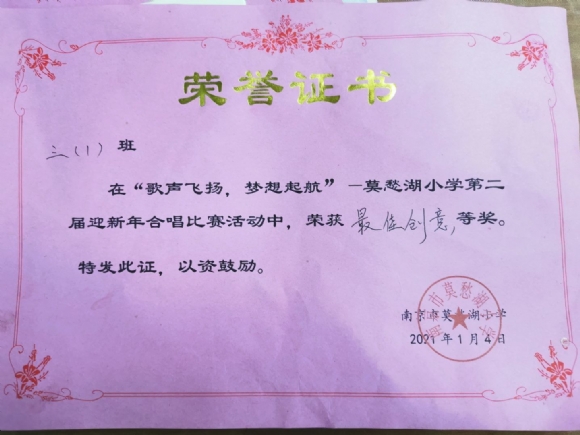 荣誉证书
三（1）班
在“歌声飞扬，梦想起航”—莫愁湖小学第二
届迎新年合唱比赛活动中，荣获 最佳创意，等奖。
特发此证，以资鼓励。
南京市莫愁湖小学
2021年1月4日